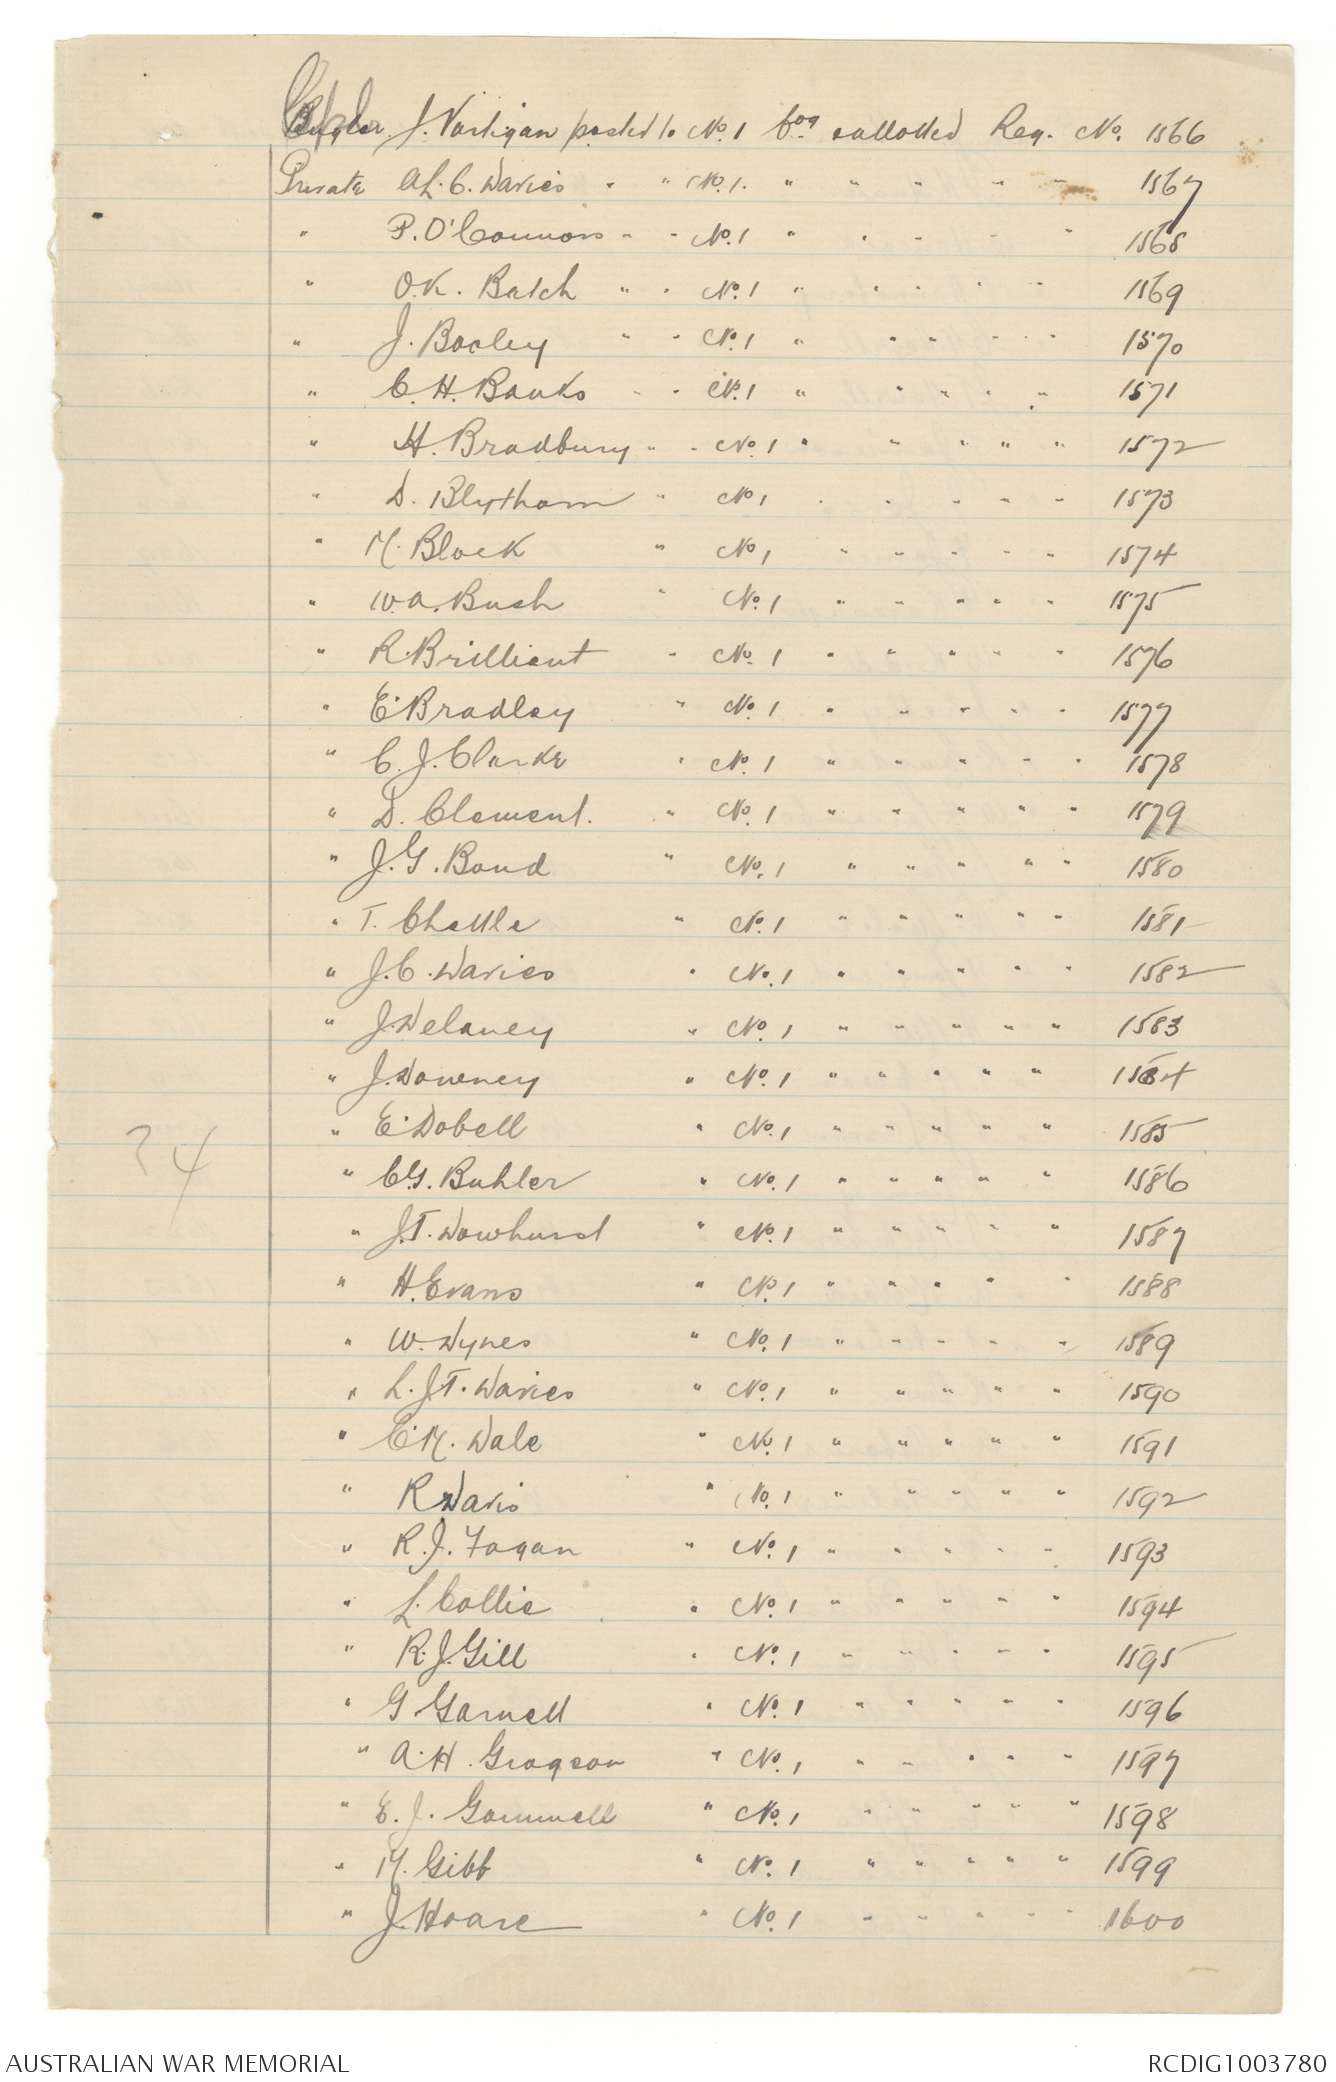 Bugler J. Vartigan posted to No. 1 Coy allotted Reg. No. 1566
Private A.L.C. Davies " " No. 1. " " " " " 1567
" P. O'Connors " " No. 1 " " " " " 1568
" O.K. Batch " " No. 1 " " " " " 1569
" J. Booley " " No. 1 " " " " " 1570
" C. H. Banks " " No. 1 " " " " " 1571
" H. Bradbury " " No. 1 " " " " " 1572
" D. Blytham " No 1 " " " " " 1573
" M. Block " No 1 " " " " " 1574
" W.A. Bush " No. 1 " " " " " 1575
" R. Brilliant " No. 1 " " " " " 1576
" E. Bradley " No. 1 " " " " " 1577
" C. J. Clarke " No. 1 " " " " " 1578
" D. Clement. " No. 1 " " " " " 1579
" J. G. Bond " No. 1 " " " " " 1580
" T. Chettle " No. 1 " " " " " 1581
" J. C. Davies " No. 1 " " " " " 1582
" J. Delaney " No. 1 " " " " " 1583
" J. Downey " No. 1 " " " " " 1584
" E. Dobell " No. 1 " " " " " 1585
34
" C.G. Buhler " No. 1 " " " " " 1586
" J.T. Dowhurst " No. 1 " " " " " 1587
" H. Evans " No. 1 " " " " " 1588
" W. Dynes " No. 1 " " " " " 1589
" L. J.T. Davies " No. 1 " " " " " 1590
" E. M. Dale " No. 1 " " " " " 1591
" R Davis " No. 1 " " " " " 1592
" R. J. Fagan " No. 1 " " " " " 1593
" L. Collie " No. 1 " " " " " 1594
" R. J. Gill " No. 1 " " " " " 1595
" G Garnett " No. 1 " " " " " 1596
" A. H. Gregson " No. 1 " " " " " 1597
" E. J. Gammell " No. 1 " " " " " 1598
" M. Gibb " No. 1 " " " " " 1599
" J. Hoare " No. 1 " " " " " 1600
AUSTRALIAN WAR MEMORIAL RCDIG1003780